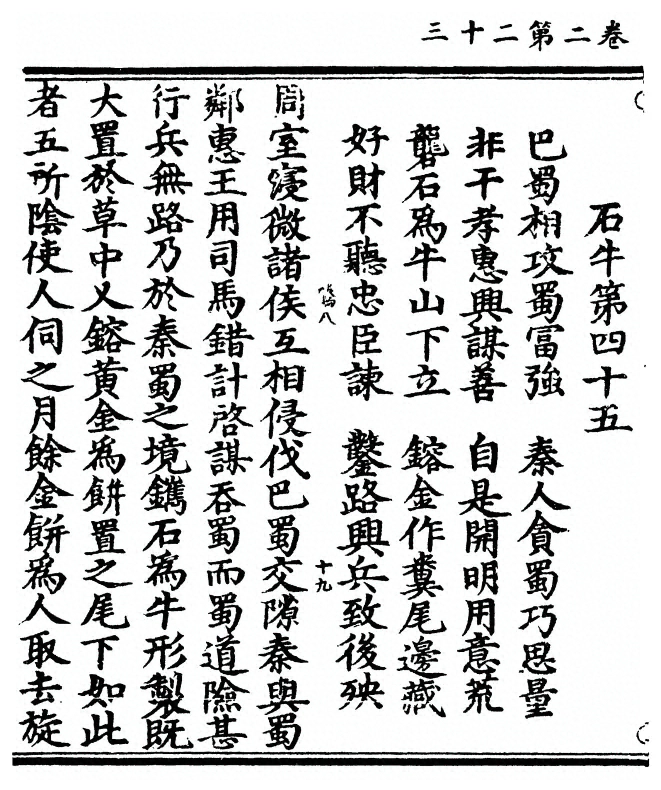 卷二第二十三
石牛第四十五
巴蜀相攻蜀富強　秦人貪蜀巧思量
非干孝惠興謀善　自是開明用意荒
礱石為牛山下立　鎔金作糞尾邊藏
好財不聽忠臣諫　鑿路興兵致後殃
周室寖微諸侯互相侵伐巴蜀交隙秦與蜀
十九
鄰惠王用司馬錯計啓謀吞蜀而蜀道險甚
行兵無路乃於秦蜀之境鐫石為牛形製既
大置於草中乂鎔黃金為餅置之尾下如此
者五所陰使人伺之月餘金餅為人取去旋